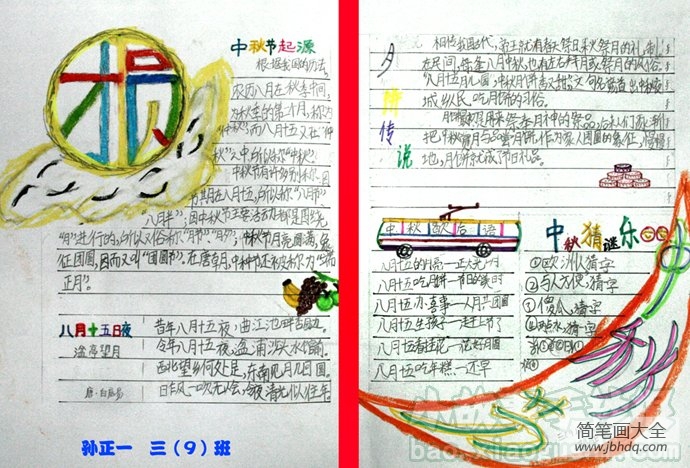 中秋节起源
根据我国的历法,
农历八月在秋季中间,
为秋季的第二个月,称为
"仲秋",而八月十五又在"仲
秋"之中,所以称"中秋"。
中秋节有许多别称:因
节期在八月十五,所以称"八月节"、
"八月半";因中秋节主要活动都是围绕
"月"进行的,所以又俗称"月节"、"月夕";中秋节月亮圆满,象
征团圆,因而又叫"团圆节"。在唐朝,中秋节还被称为"端
正月"。
八月十五日夜
湓亭望月
唐·白居易
昔年八月十五夜,曲江池畔杏园边。
今年八月十五夜,湓浦沙头水馆前。
西北望乡何处是,东南见月几回圆。
昨风一吹无人会,今夜清光似往年
孙正一 三(9)班
月饼传说
相传我国古代,帝王就有春天祭日,秋天祭月的礼制。
在民间,每逢八月中秋,也有左右拜月或祭月的风俗。
"八月十五月儿圆,中秋月饼香又甜",这句名谚道出中秋之夜
城乡人民吃月饼的习俗。
月饼最初是用来祭奉月神的祭品,后来人们逐渐
把中秋赏月与品尝月饼,作为家人团圆的象征,慢慢
地,月饼就成了节日礼品。
中秋歇后语
八月十五的月亮—正大光明
八月十五吃月饼—节日的美时
八月十五办喜事—人月共团圆
八月十五生孩子—赶上节了
八月十五看桂花—花好月圆
八月十五吃年糕—还早
中秋猜谜乐
①欧洲人猜字
②与人方便,猜字
③傻人,猜字
秋
简笔画大全
www.jbhdq.com